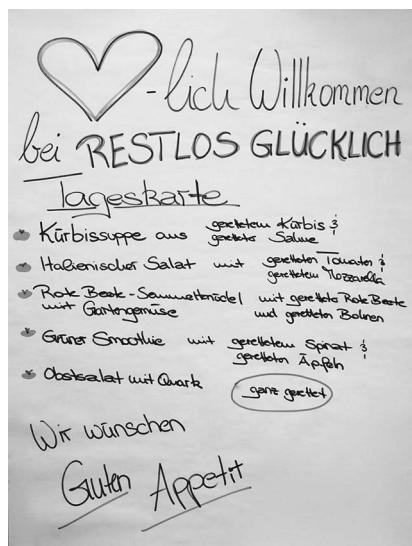 -lich Willkommen
bei RESTLOS GLÜCKLICH
Tageskarte
Kürbissuppe aus gerettetem Kürbis &
geretteter Sahne
Italienischer Salat mit geretteten Tomaten &
gerettetem Mozzarella
Rote Beete-Semmelknödel mit gerettete Rote Beete
mit Gartengemüse und geretteten Bohnen
Grüner Smoothie mit gerettetem Spinat &
geretteten Äpfeln
Obstsalat mit Quark ganz gerettet
Wir wünschen
Guten Appetit